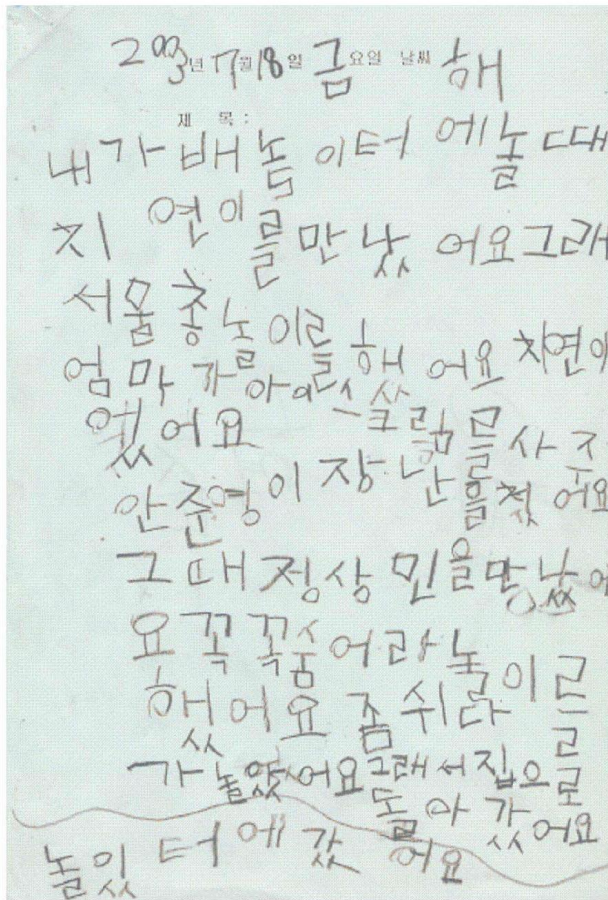 2003년 7월 18일 금요일 날씨 해
제 목 :
내가 배놈이터에 놀때
지연이를 만났어요 그래
서 물총놀이를 했어요 지연이
엄마가 아이스크림을 사주
었어요
안준영이 장난을 쳤어요
그때 정상민을 만났어
요 꼭꼭숨어라 놀이를
했어요 좀 쉬라
가 놀았어요 그래서 집으로
돌아갔어요
놀잇터에 갔어요